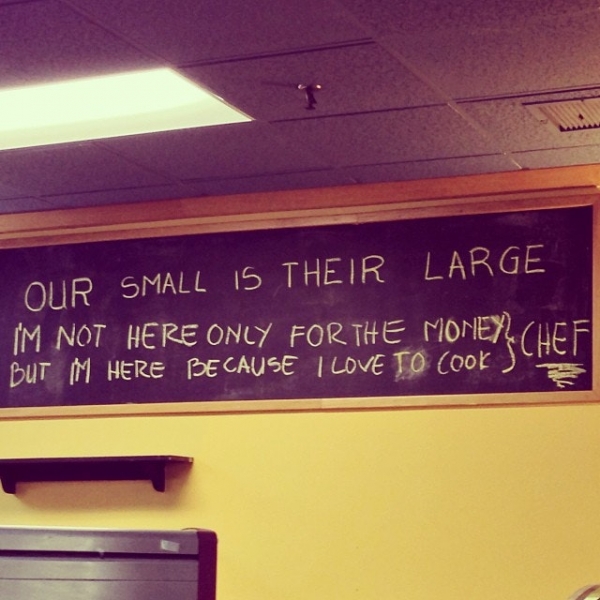 OUR SMALL IS THEIR LARGE
I'M NOT HERE ONLY FOR THE MONEY
BUT I'M HERE BECAUSE I LOVE TO COOK } CHEF